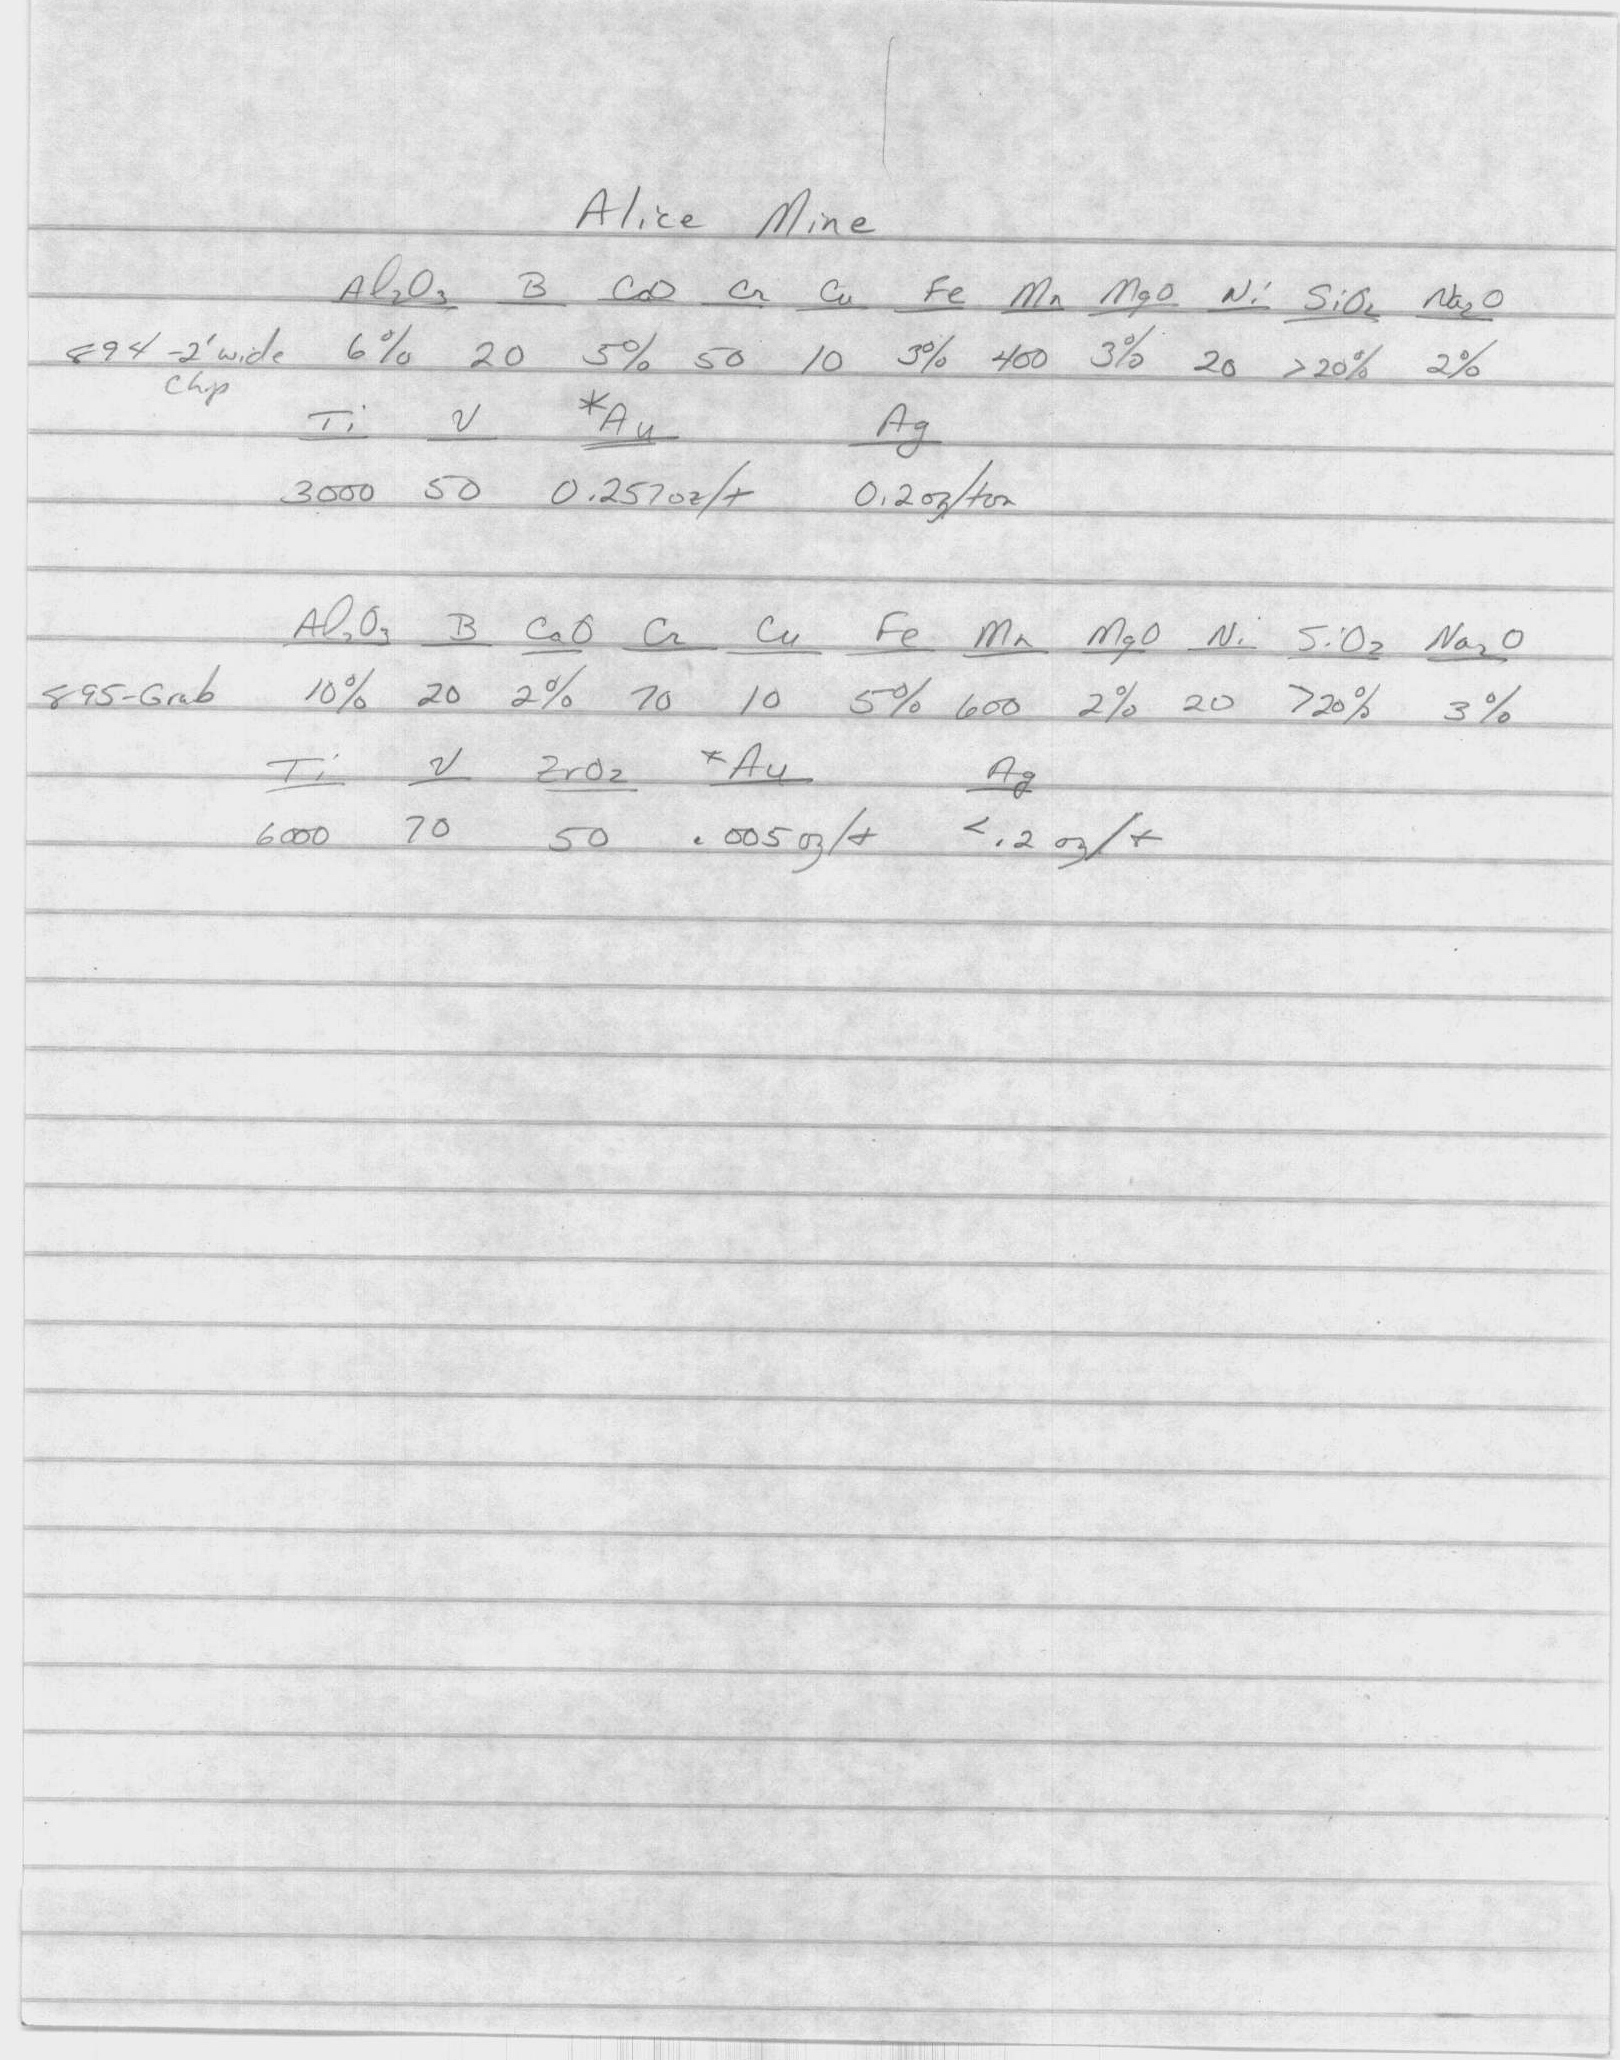 Alice Mine
Al2O3 B CaO Cr Cu Fe Mn MgO Ni SiO2 Na2O
894 -2' wide 6% 20 5% 50 10 3% 400 3% 20 >20% 2%
Chip
Ti V *Au Ag
3000 50 0.257oz/t 0.2oz/ton
Al2O3 B CaO Cr Cu Fe Mn MgO Ni SiO2 Na2O
895-Grab 10% 20 2% 70 10 5% 600 2% 20 >20% 3%
Ti V ZrO2 *Au Ag
6000 70 50 .005oz/t <.2 oz/t